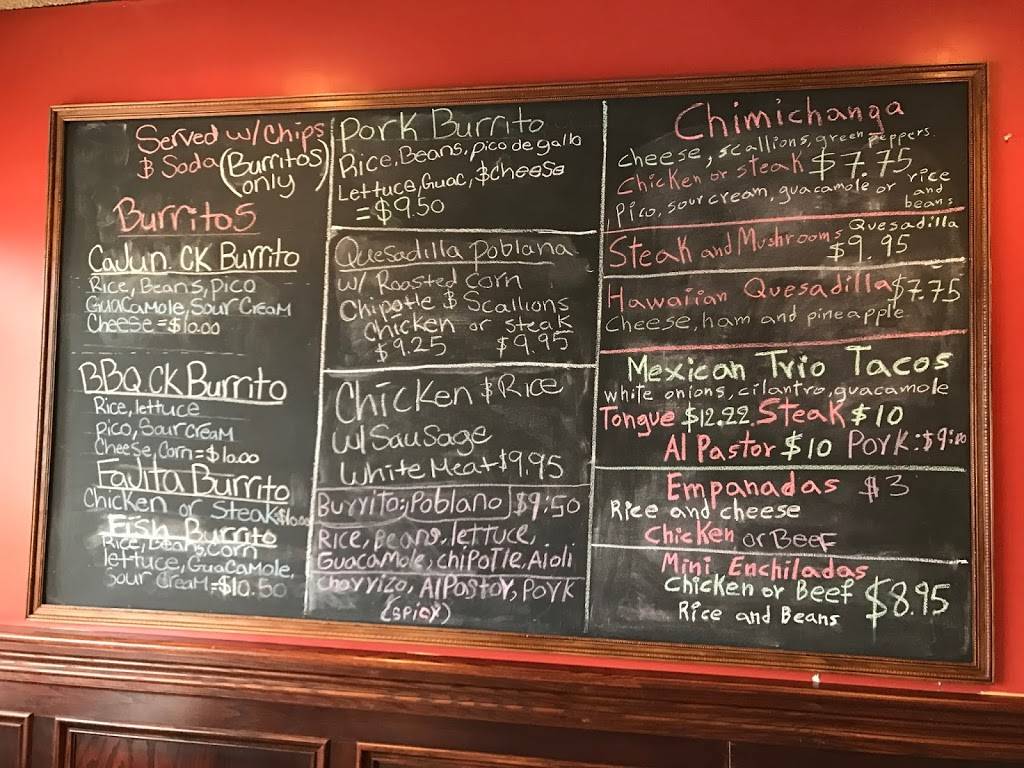 Served w/Chips
& Soda (Burritos
only)
Burritos
Cajun CK Burrito
Rice, Beans, pico
Guacamole, Sour Cream
Cheese = $10.00
BBQ CK Burrito
Rice, lettuce
pico, Sour Cream
Cheese, Corn = $10.00
Fajita Burrito
Chicken or Steak $10.00
Fish Burrito
Rice, Beans, corn
lettuce, Guacamole,
Sour Cream = $10.50
Pork Burrito
Rice, Beans, pico de gallo
Lettuce, Guac, & cheese
= $9.50
Quesadilla Poblana
w/ Roasted corn
Chipotle & Scallions
chicken or steak
$9.25 $9.95
Chicken & Rice
w/ Sausage
White Meat $9.95
Burrito; Poblano $9.50
Rice, beans, lettuce,
Guacamole, chipotle, Aioli
Choyyizo, Al Pastor, Pork
(spicy)
Chimichanga
cheese, scallions, green peppers
Chicken or steak $7.75
Pico, sour cream, guacamole or rice
and
beans
Steak and Mushrooms Quesadilla
$9.95
Hawaiian Quesadilla $7.75
Cheese, ham and pineapple
Mexican Trio Tacos
white onions, cilantro, guacamole
Tongue $12.22 Steak $10
Al Pastor $10 Pork: $9:00
Empanadas $3
Rice and cheese
Chicken or Beef
Mini Enchiladas
Chicken or Beef $8.95
Rice and Beans